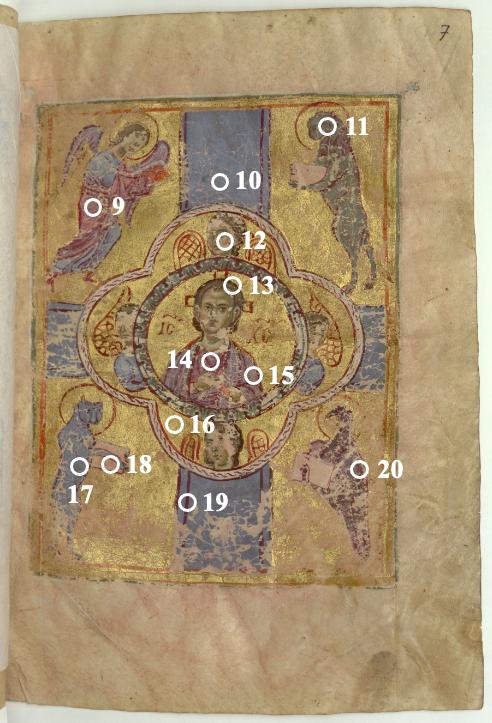 7
11
10
9
12
13
IC XC
14
15
16
18 20
17
19